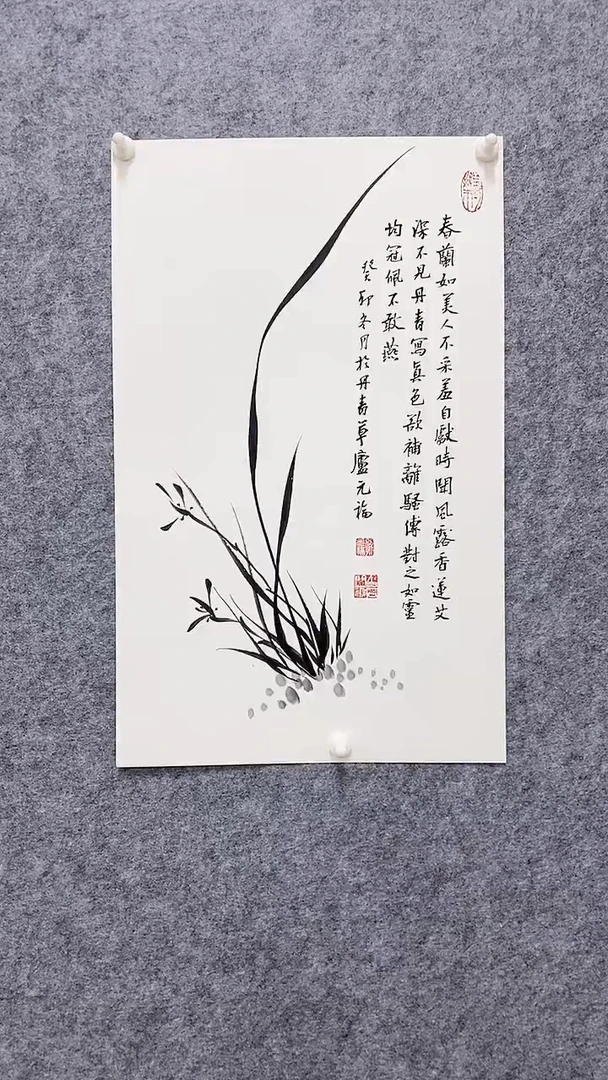 春蘭如美人不采羞自獻時聞風露香蓬艾
深不見丹青寫真色欲補離騷傳對之如靈
均冠佩不敢燕
癸卯冬月於丹青草廬元福